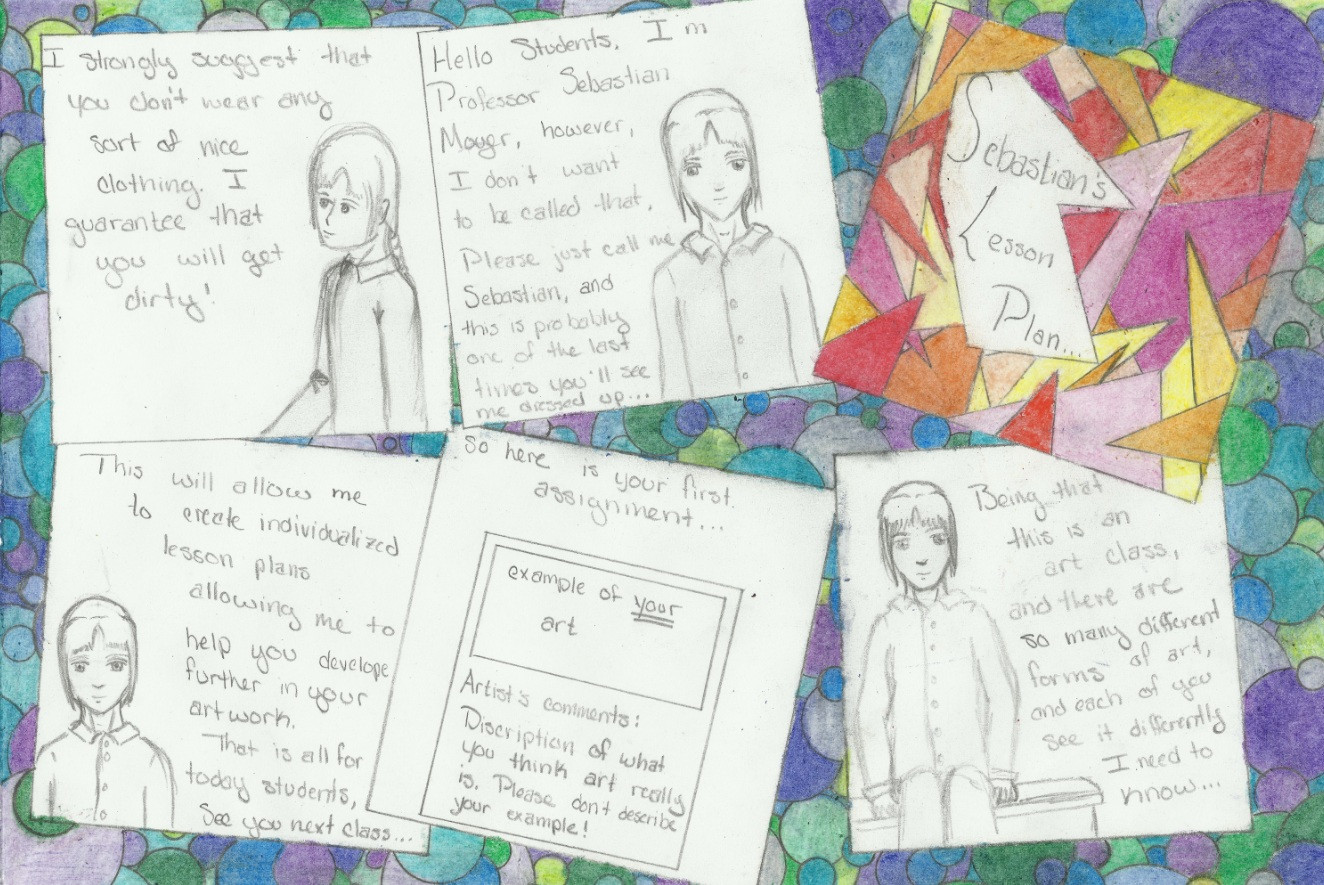 Sebastian's
Lesson
Plan...
Hello Students, I'm
Professor Sebastian
Moyer, however,
I don't want
to be called that,
Please just call me
Sebastian, and
this is probably
one of the last
times you'll see
me dressed up...
I strongly suggest that
you don't wear any
sort of nice
clothing. I
guarantee that
you will get
dirty!
Being that
this is an
art class,
and there are
so many different
forms of art,
and each of you
see it differently
I need to
know...
So here is your first
assignment...
example of your
art
Artist's comments:
Discription of what
you think art really
is. Please don't describe
your example!
This will allow me
to create individualized
lesson plans
allowing me to
help you develope
further in your
artwork.
That is all for
today students,
See you next class...